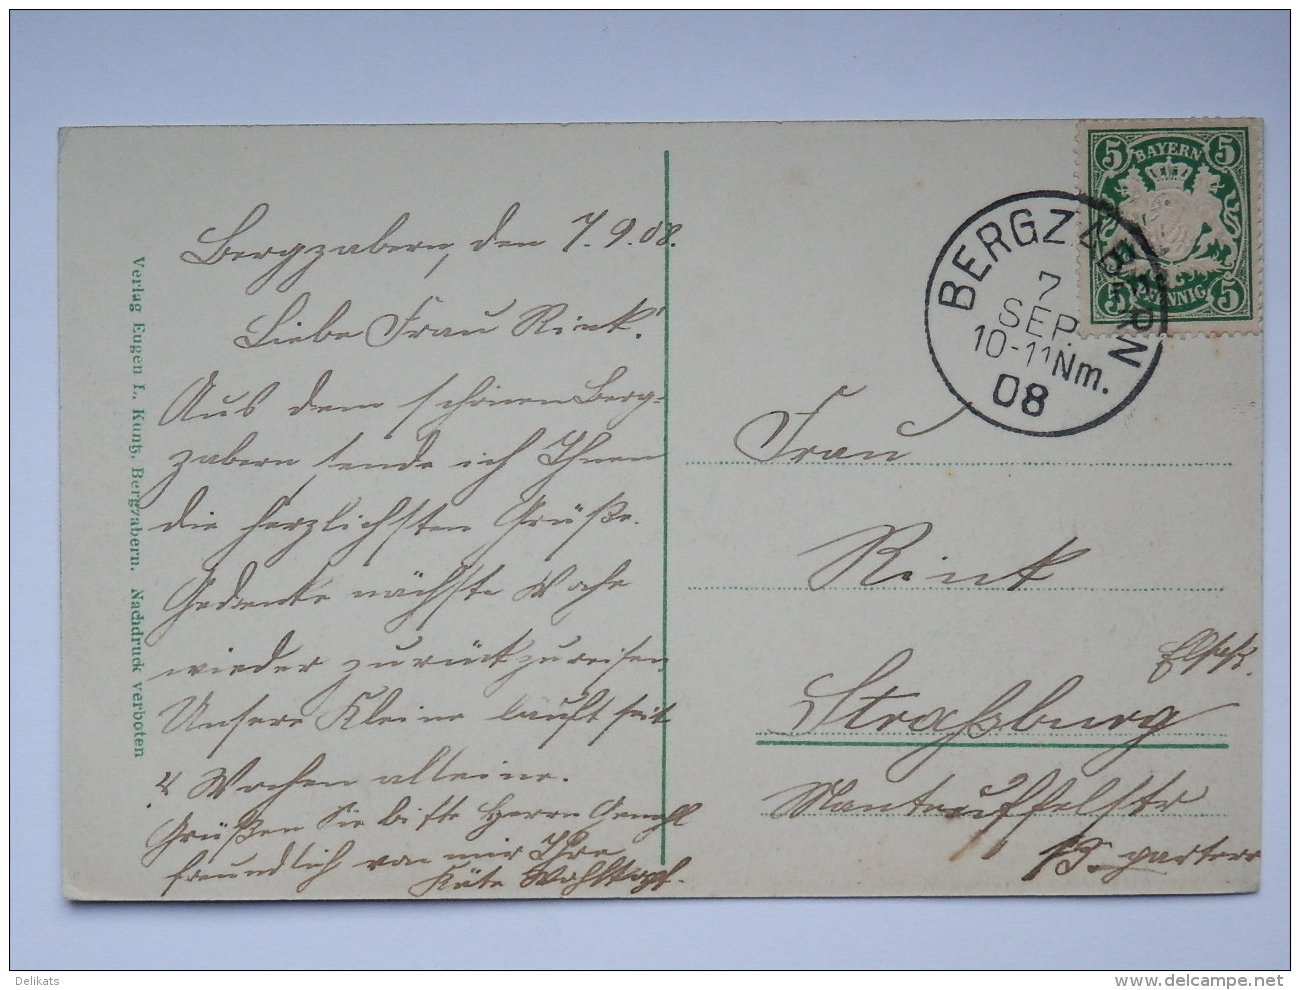 Bergzabern, den 7.9.08.
Liebe Frau Rink!
Aus dem schönen Berg-
zabern sende ich Ihnen
die herzlichsten Grüße.
Gedenke nächste Woche
wieder zurückzureisen
Unsere Kleine läuft seit
4 Wochen alleine.
Grüßen Sie bitte Herrn
freundlich von mir Ihre
Käte
Verlag Eugen L. Kuntz, Bergzabern. Nachdruck verboten
BAYERN
5 5
5 PFENNIG 5
BERGZABERN
7
SEP.
10-11 Nm.
08
Frau
Rink
Straßburg
Manteuffelstr
13. parterre
Delikats
www.delcampe.net